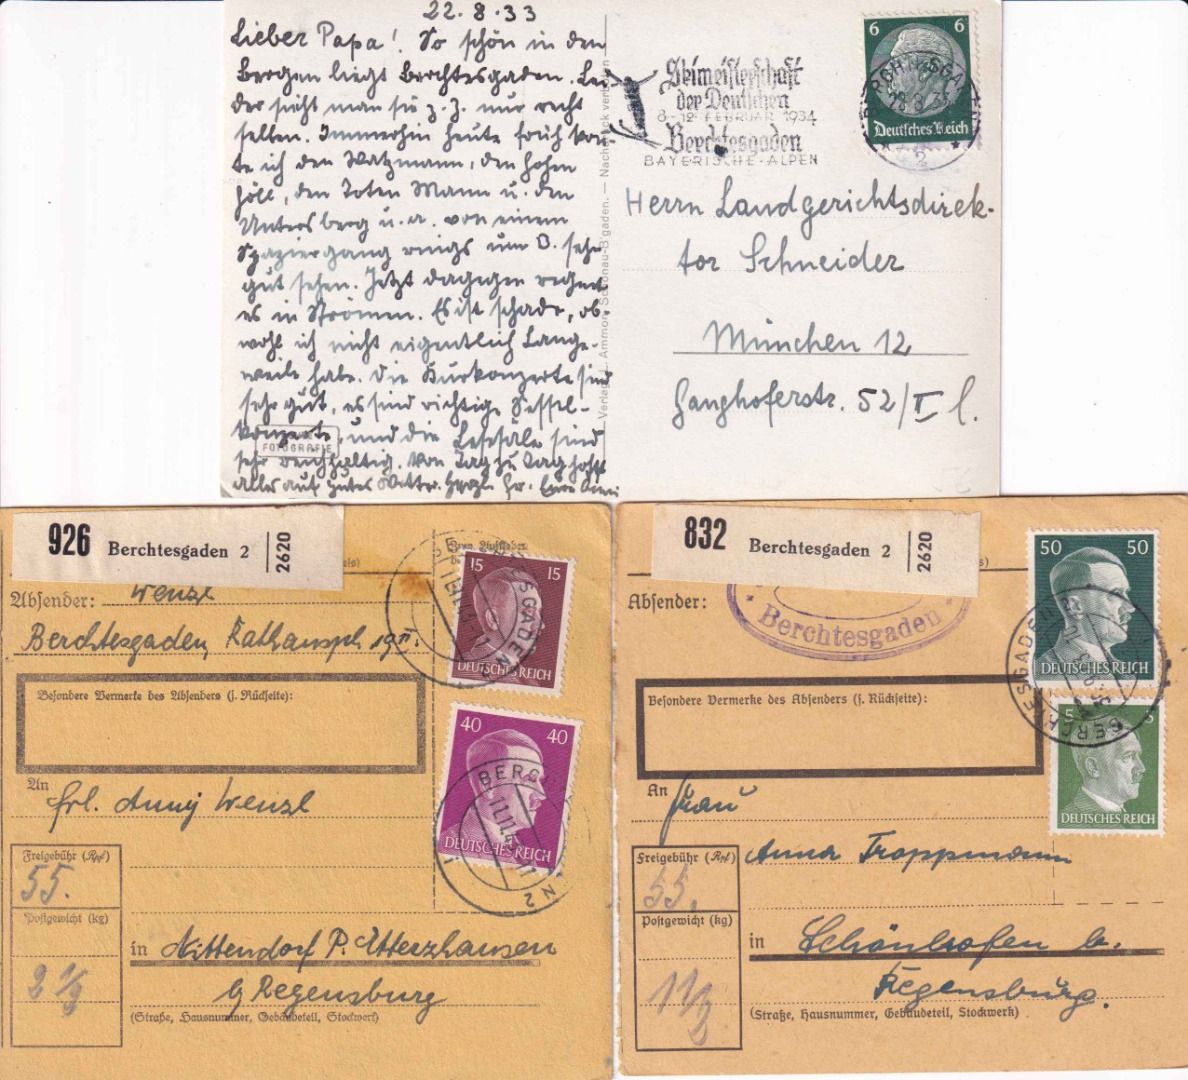 22.8.33
Lieber Papa! So schön in den
Bergen liegt Berchtesgaden. Lei
der sieht man sie z.Z. nur recht
selten. Immerhin heute früh konn
te ich den Watzmann, den hohen
Göll, den Toten Mann u. den
Untersberg u.a. von einem
Spaziergang rings um B. sehr
gut sehen. Jetzt dagegen regnet
es in Strömen. Es ist schade, ob-
wohl ich nicht eigentlich Lange-
weile habe. Die Kurkonzerte sind
sehr gut, es sind richtige Sessel-
konzerte, und die Lesesäle sind
sehr reichhaltig. Von Tag zu Tag hofft
alles auf gutes Wetter. Herzl. Gr.
FOTOGRAFIE
Verlag L. Ammon, Schönau-B'gaden. — Nachdruck verboten
Skimeisterschaft
der Deutschen
8-12 FEBRUAR 1934
Berchtesgaden
BAYERISCHE-ALPEN
6 6
Deutsches Reich
BERCHTESGADEN
22.8.33
2
Herrn Landgerichtsdirek-
tor Schneider
München 12
Ganghoferstr. 52/I l.
926 Berchtesgaden 2 2620
Absender: Wenzl
Berchtesgaden, Rathauspl. 19 II.
Besondere Vermerke des Absenders (s. Rückseite):
15
DEUTSCHES REICH
40 40
DEUTSCHES REICH
BERCHTESGADEN 2
11.11.43
An Frl. Anny Wenzl
Freigebühr (Rpf)
55.
Postgewicht (kg)
2 1/2
in Nittendorf P. Etterzhausen
b/ Regensburg
(Straße, Hausnummer, Gebäudeteil, Stockwerk)
832 Berchtesgaden 2 2620
Absender:
Berchtesgaden
Besondere Vermerke des Absenders (s. Rückseite):
50 50
DEUTSCHES REICH
5 5
DEUTSCHES REICH
BERCHTESGADEN
An Frau
Anna Troppmann
Freigebühr (Rpf)
55.
Postgewicht (kg)
1 1/2
in Schönhofen b.
Regensburg.
(Straße, Hausnummer, Gebäudeteil, Stockwerk)